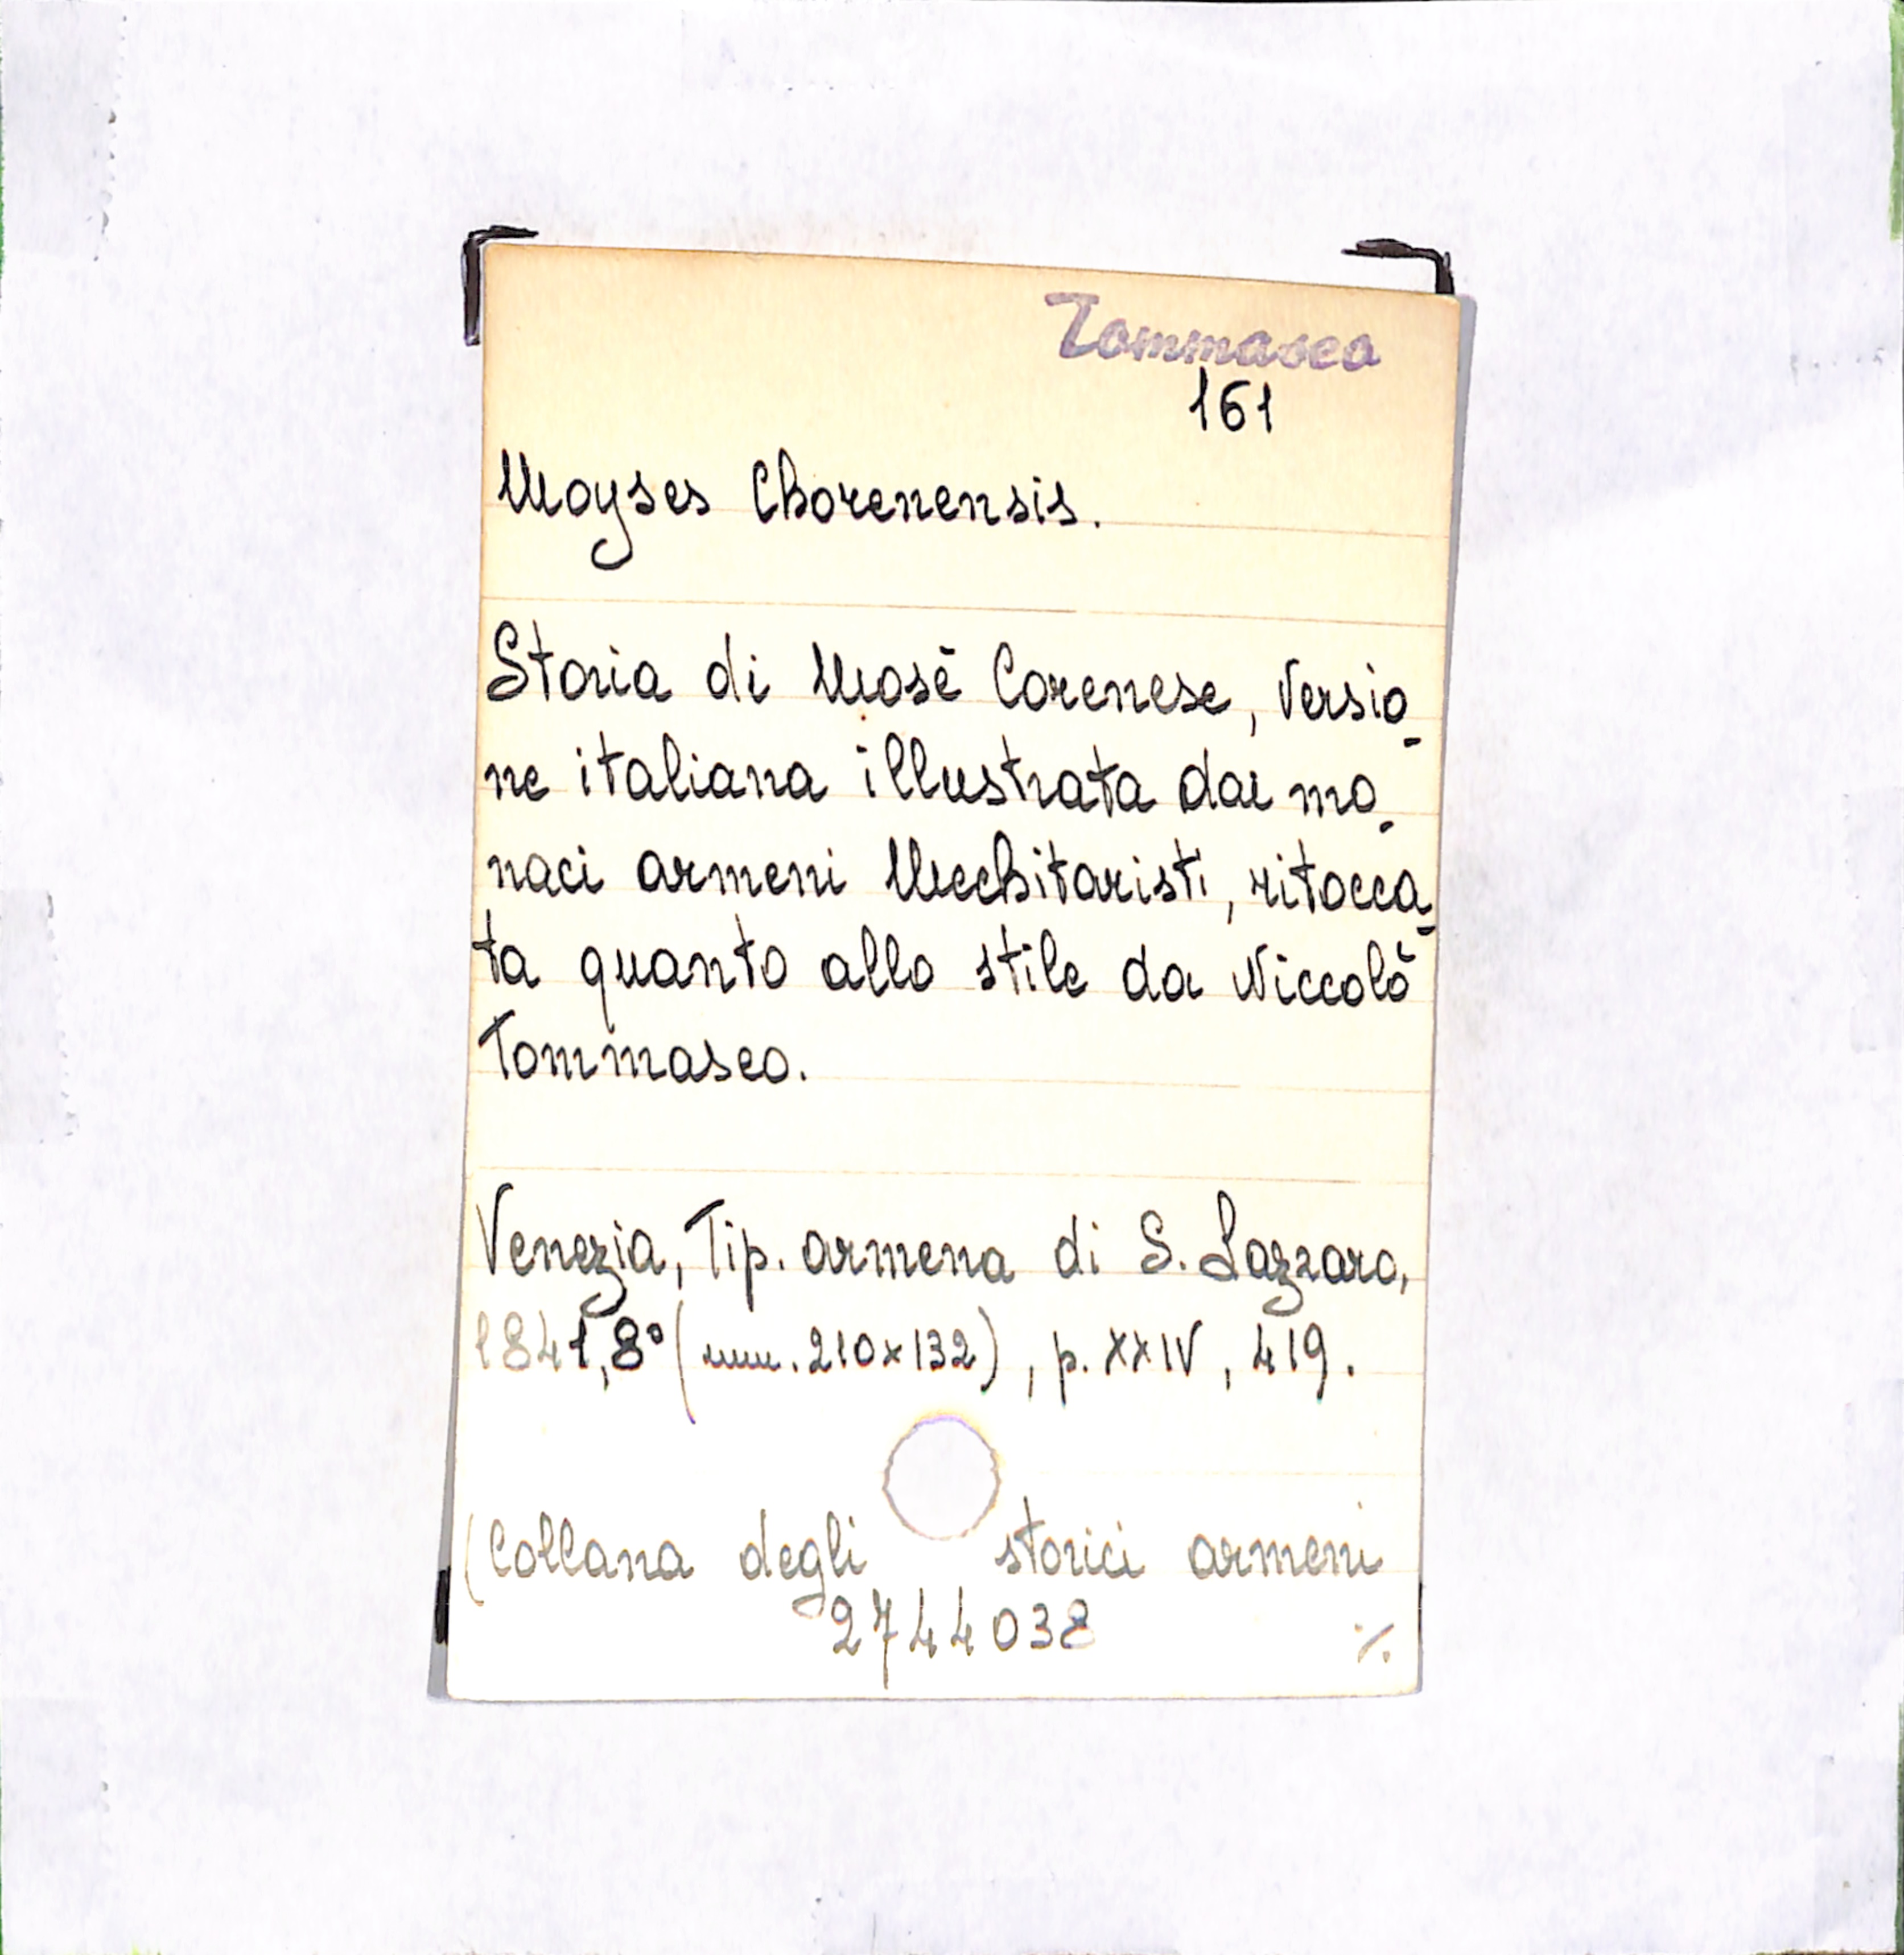 Tommaseo
161
Moyses Chorenensis.
Storia di Mosè Corenese, versio-
ne italiana illustrata dai mo-
naci armeni Mechitaristi, ritocca-
ta quanto allo stile da Niccolò
Tommaseo.
Venezia, Tip. armena di S. Lazzaro,
1841, 8° (mm. 210x132), p. XXIV, 419.
(Collana degli storici armeni
2744038 ./.